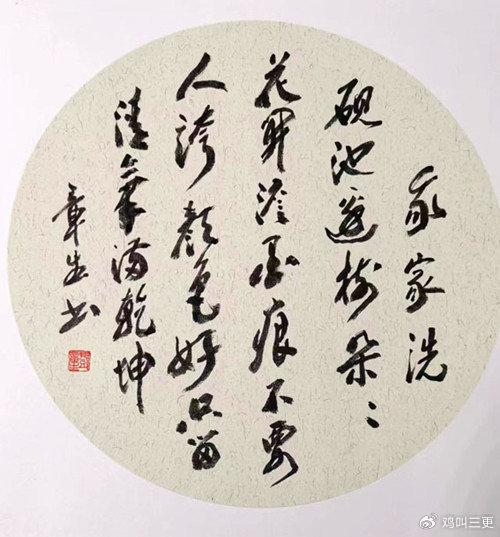 我家洗
硯池边树朵々
花开澹墨痕不要
人誇颜色好只留
清氣满乾坤
章生书
鸡叫三更